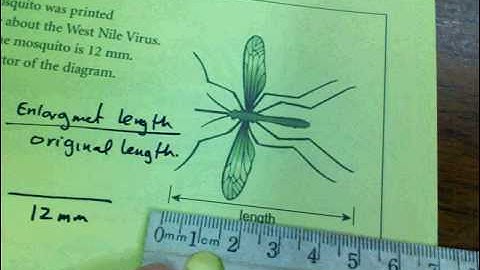 osquito was printed
about the West Nile Virus.
e mosquito is 12 mm.
tor of the diagram.
Enlargmet length
original length.
12mm
length
0mm 1cm 2 3 4 5 6 7